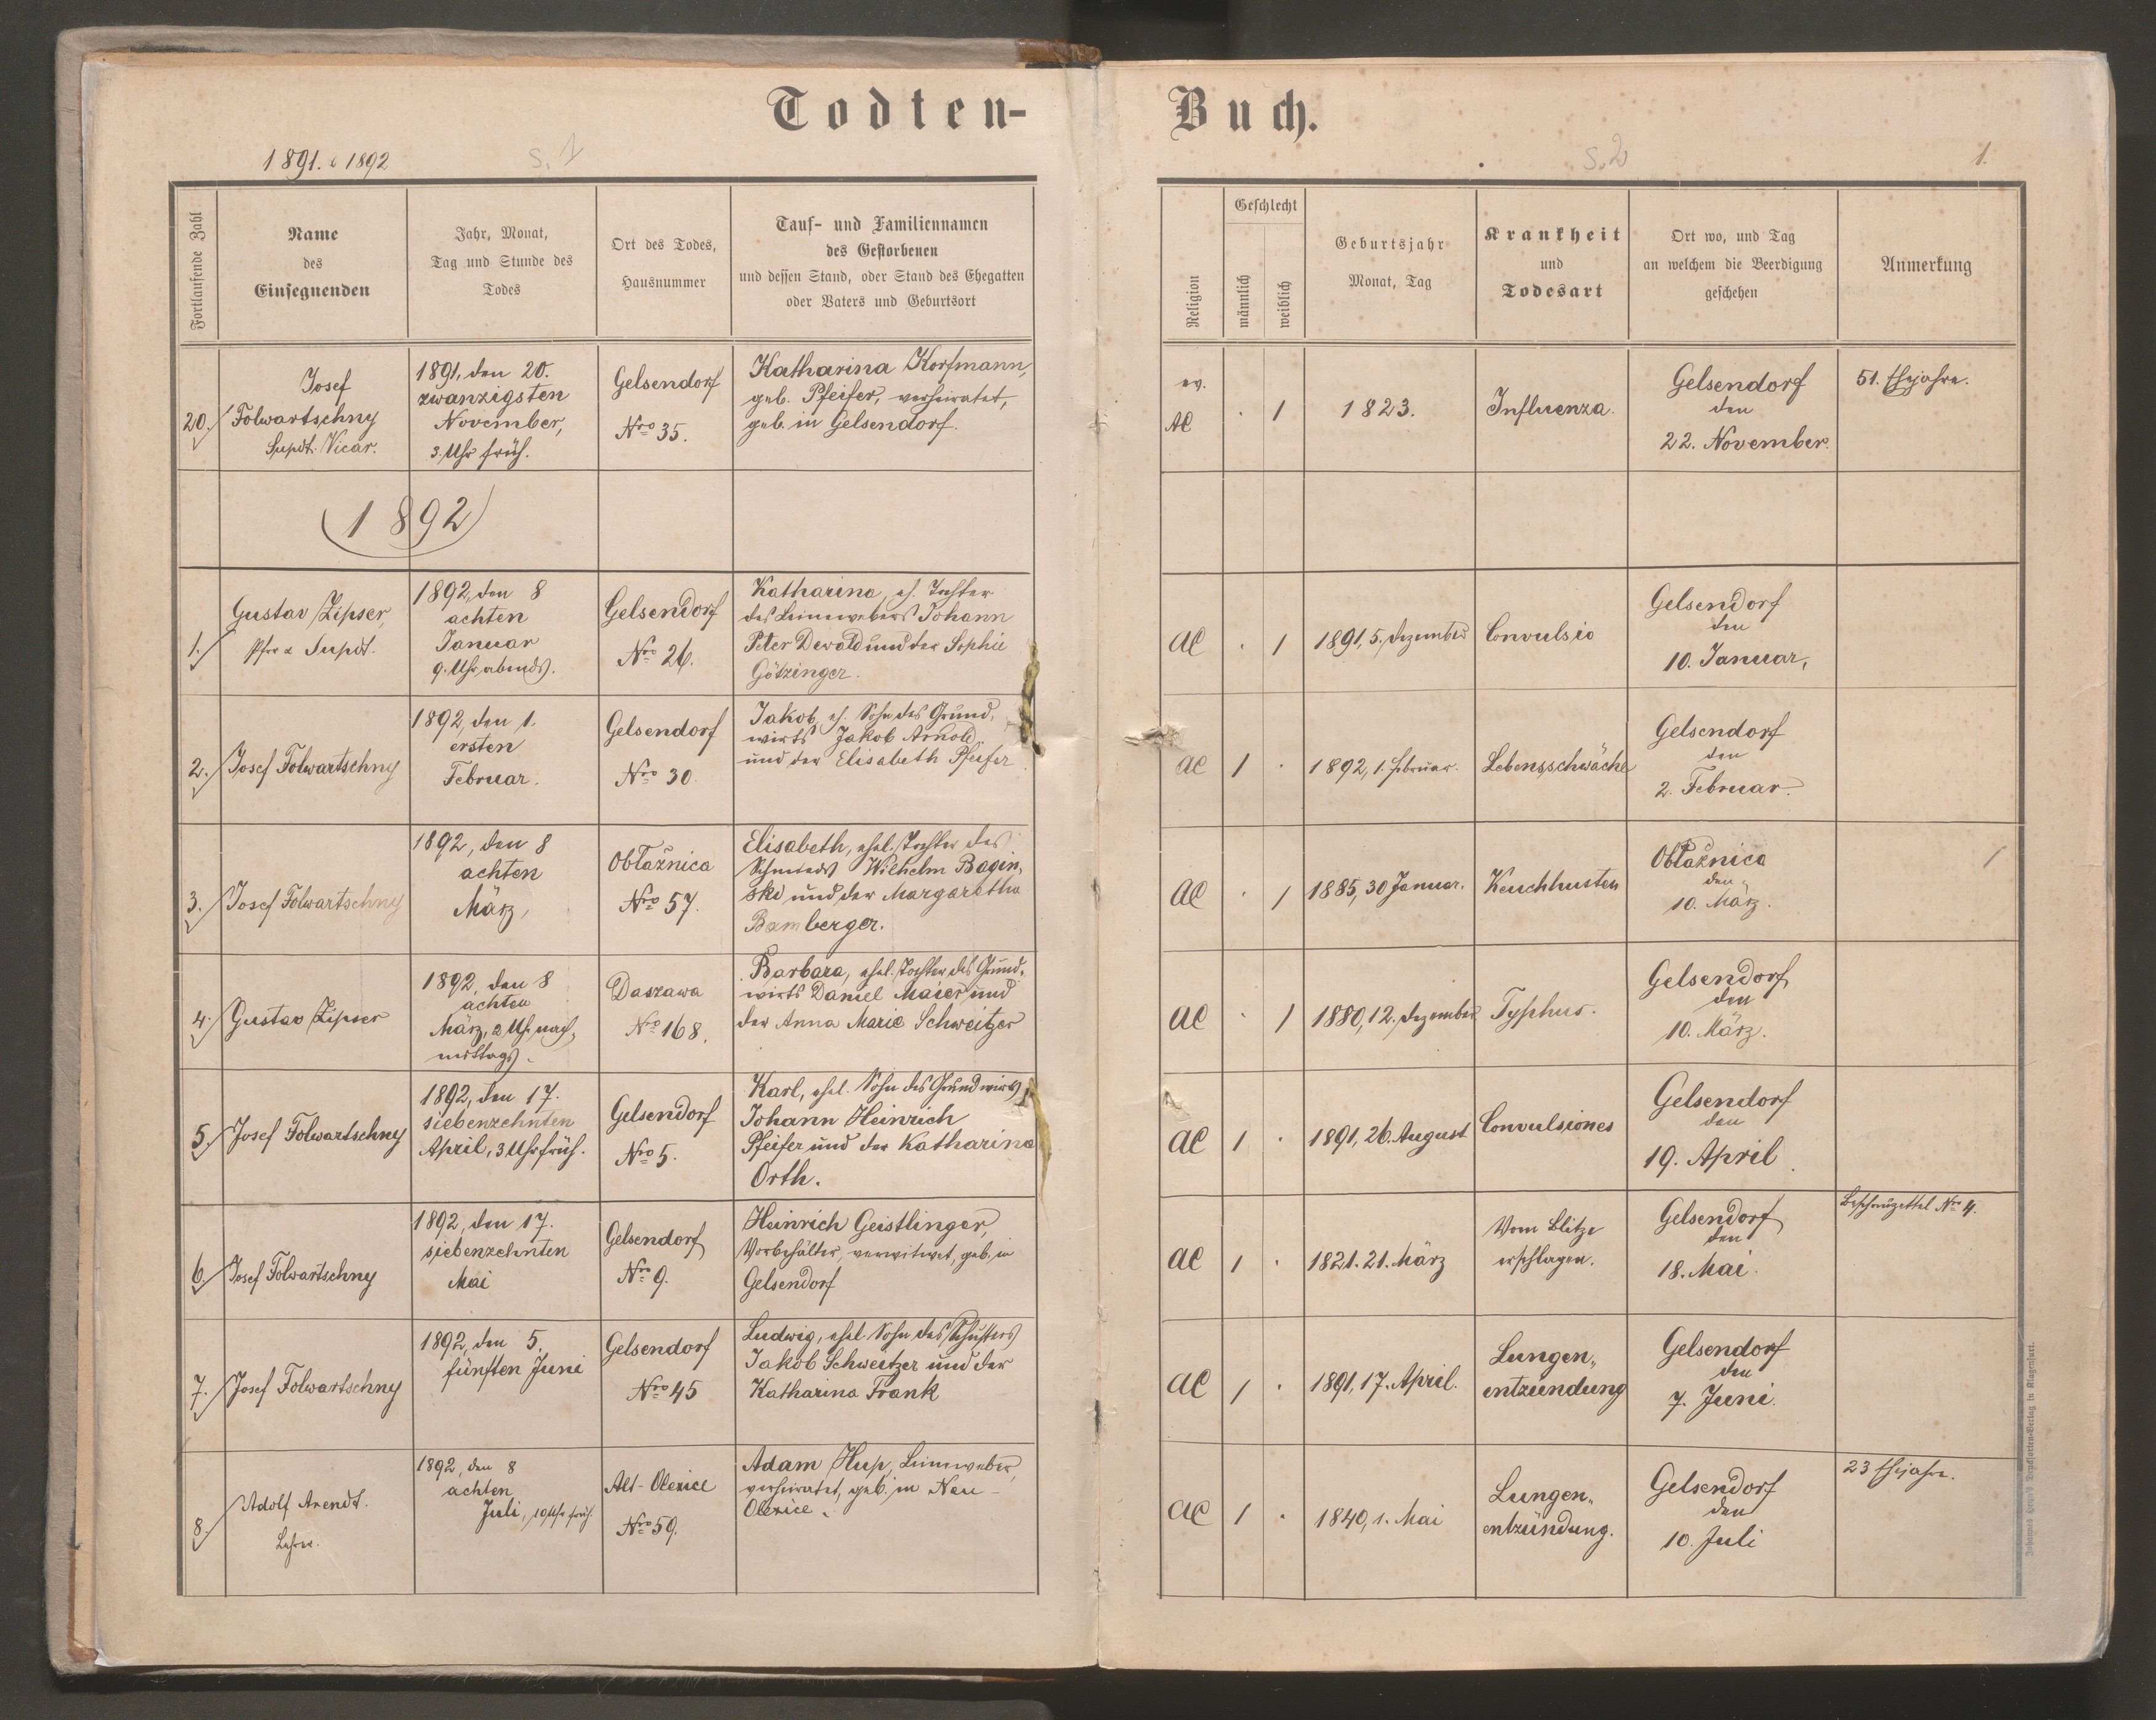 Todten-
Buch.
1891. & 1892
S. 1
S. 2
1.
Fortlaufende Zahl
Name
des
Einsegnenden
Jahr, Monat,
Tag und Stunde des
Todes
Ort des Todes,
Hausnummer
Tauf- und Familiennamen
des Gestorbenen
und dessen Stand, oder Stand des Ehegatten
oder Vaters und Geburtsort
Religion
Geschlecht
männlich
weiblich
Geburtsjahr
Monat, Tag
Krankheit
und
Todesart
Ort wo, und Tag
an welchem die Beerdigung
geschehen
Anmerkung
20.
Josef
Folwartschny
Supdt. Vicar.
1891, den 20.
zwanzigsten
November,
3. Uhr früh.
Gelsendorf
Nro 35.
Katharina Korfmann,
geb. Pfeifer, verheiratet,
geb. in Gelsendorf.
ev.
AC
. 1
1823.
Influenza.
Gelsendorf
den
22. November.
51. Ehejahre.
1892
1.
Gustav Zipser,
Pfrr & Supdt.
1892, den 8
achten
Januar
9. Uhr abends.
Gelsendorf
Nro 26.
Katharina, eh. Tochter
des Leinwebers Johann
Peter Dewald und der Sophie
Götzinger.
AC
. 1
1891, 5. Dezember
Convulsio
Gelsendorf
den
10. Januar,
2.
Josef Folwartschny
1892, den 1.
ersten
Februar.
Gelsendorf
Nro 30.
Jakob, eh. Sohn des Grund-
wirts Jakob Arnold
und der Elisabeth Pfeifer
AC
1 .
1892, 1. Februar.
Lebensschwäche
Gelsendorf
den
2. Februar.
3.
Josef Folwartschny
1892, den 8
achten
März,
Obłaźnica
Nro 57.
Elisabeth, ehel. Tochter des
Schmieds Wilhelm Bagin-
ski und der Margaretha
Bamberger.
AC
. 1
1885, 30 Januar.
Keuchhusten
Obłaźnica
den
10. März.
4.
Gustav Zipser
1892, den 8
achten
März, 2 Uhr nach-
mittags.
Daszawa
Nro 168.
Barbara, ehel. Tochter des Grund-
wirts Daniel Maier und
der Anna Marie Schweitzer
AC
. 1
1880, 12. Dezember
Typhus.
Gelsendorf
den
10. März.
5.
Josef Folwartschny
1892, den 17.
siebenzehnten
April, 3 Uhr früh.
Gelsendorf
Nro 5.
Karl, ehel. Sohn des Grundwirts
Johann Heinrich
Pfeifer und der Katharina
Orth.
AC
1 .
1891, 26. August
Convulsiones
Gelsendorf
den
19. April.
6.
Josef Folwartschny
1892, den 17.
siebenzehnten
Mai
Gelsendorf
Nro 9.
Heinrich Geistlinger,
Vorbehälter, verwitwet, geb. in
Gelsendorf
AC
1 .
1821. 21. März
Vom Blitze
erschlagen.
Gelsendorf
den
18. Mai.
Beschauzettel Nro 4.
7.
Josef Folwartschny
1892, den 5.
fünften Juni
Gelsendorf
Nro 45
Ludwig, ehel. Sohn des Schusters
Jakob Schweitzer und der
Katharina Frank
AC
1 .
1891, 17. April.
Lungen-
entzündung
Gelsendorf
den
7. Juni.
8.
Adolf Arendt.
Lehrer.
1892, den 8
achten
Juli, 10 Uhr früh.
Alt-Olexice
Nro 59.
Adam Hup, Leinweber,
verheiratet, geb. in Neu-
Olexice.
AC
1 .
1840, 1. Mai
Lungen-
entzündung.
Gelsendorf
den
10. Juli
23 Ehejahre.